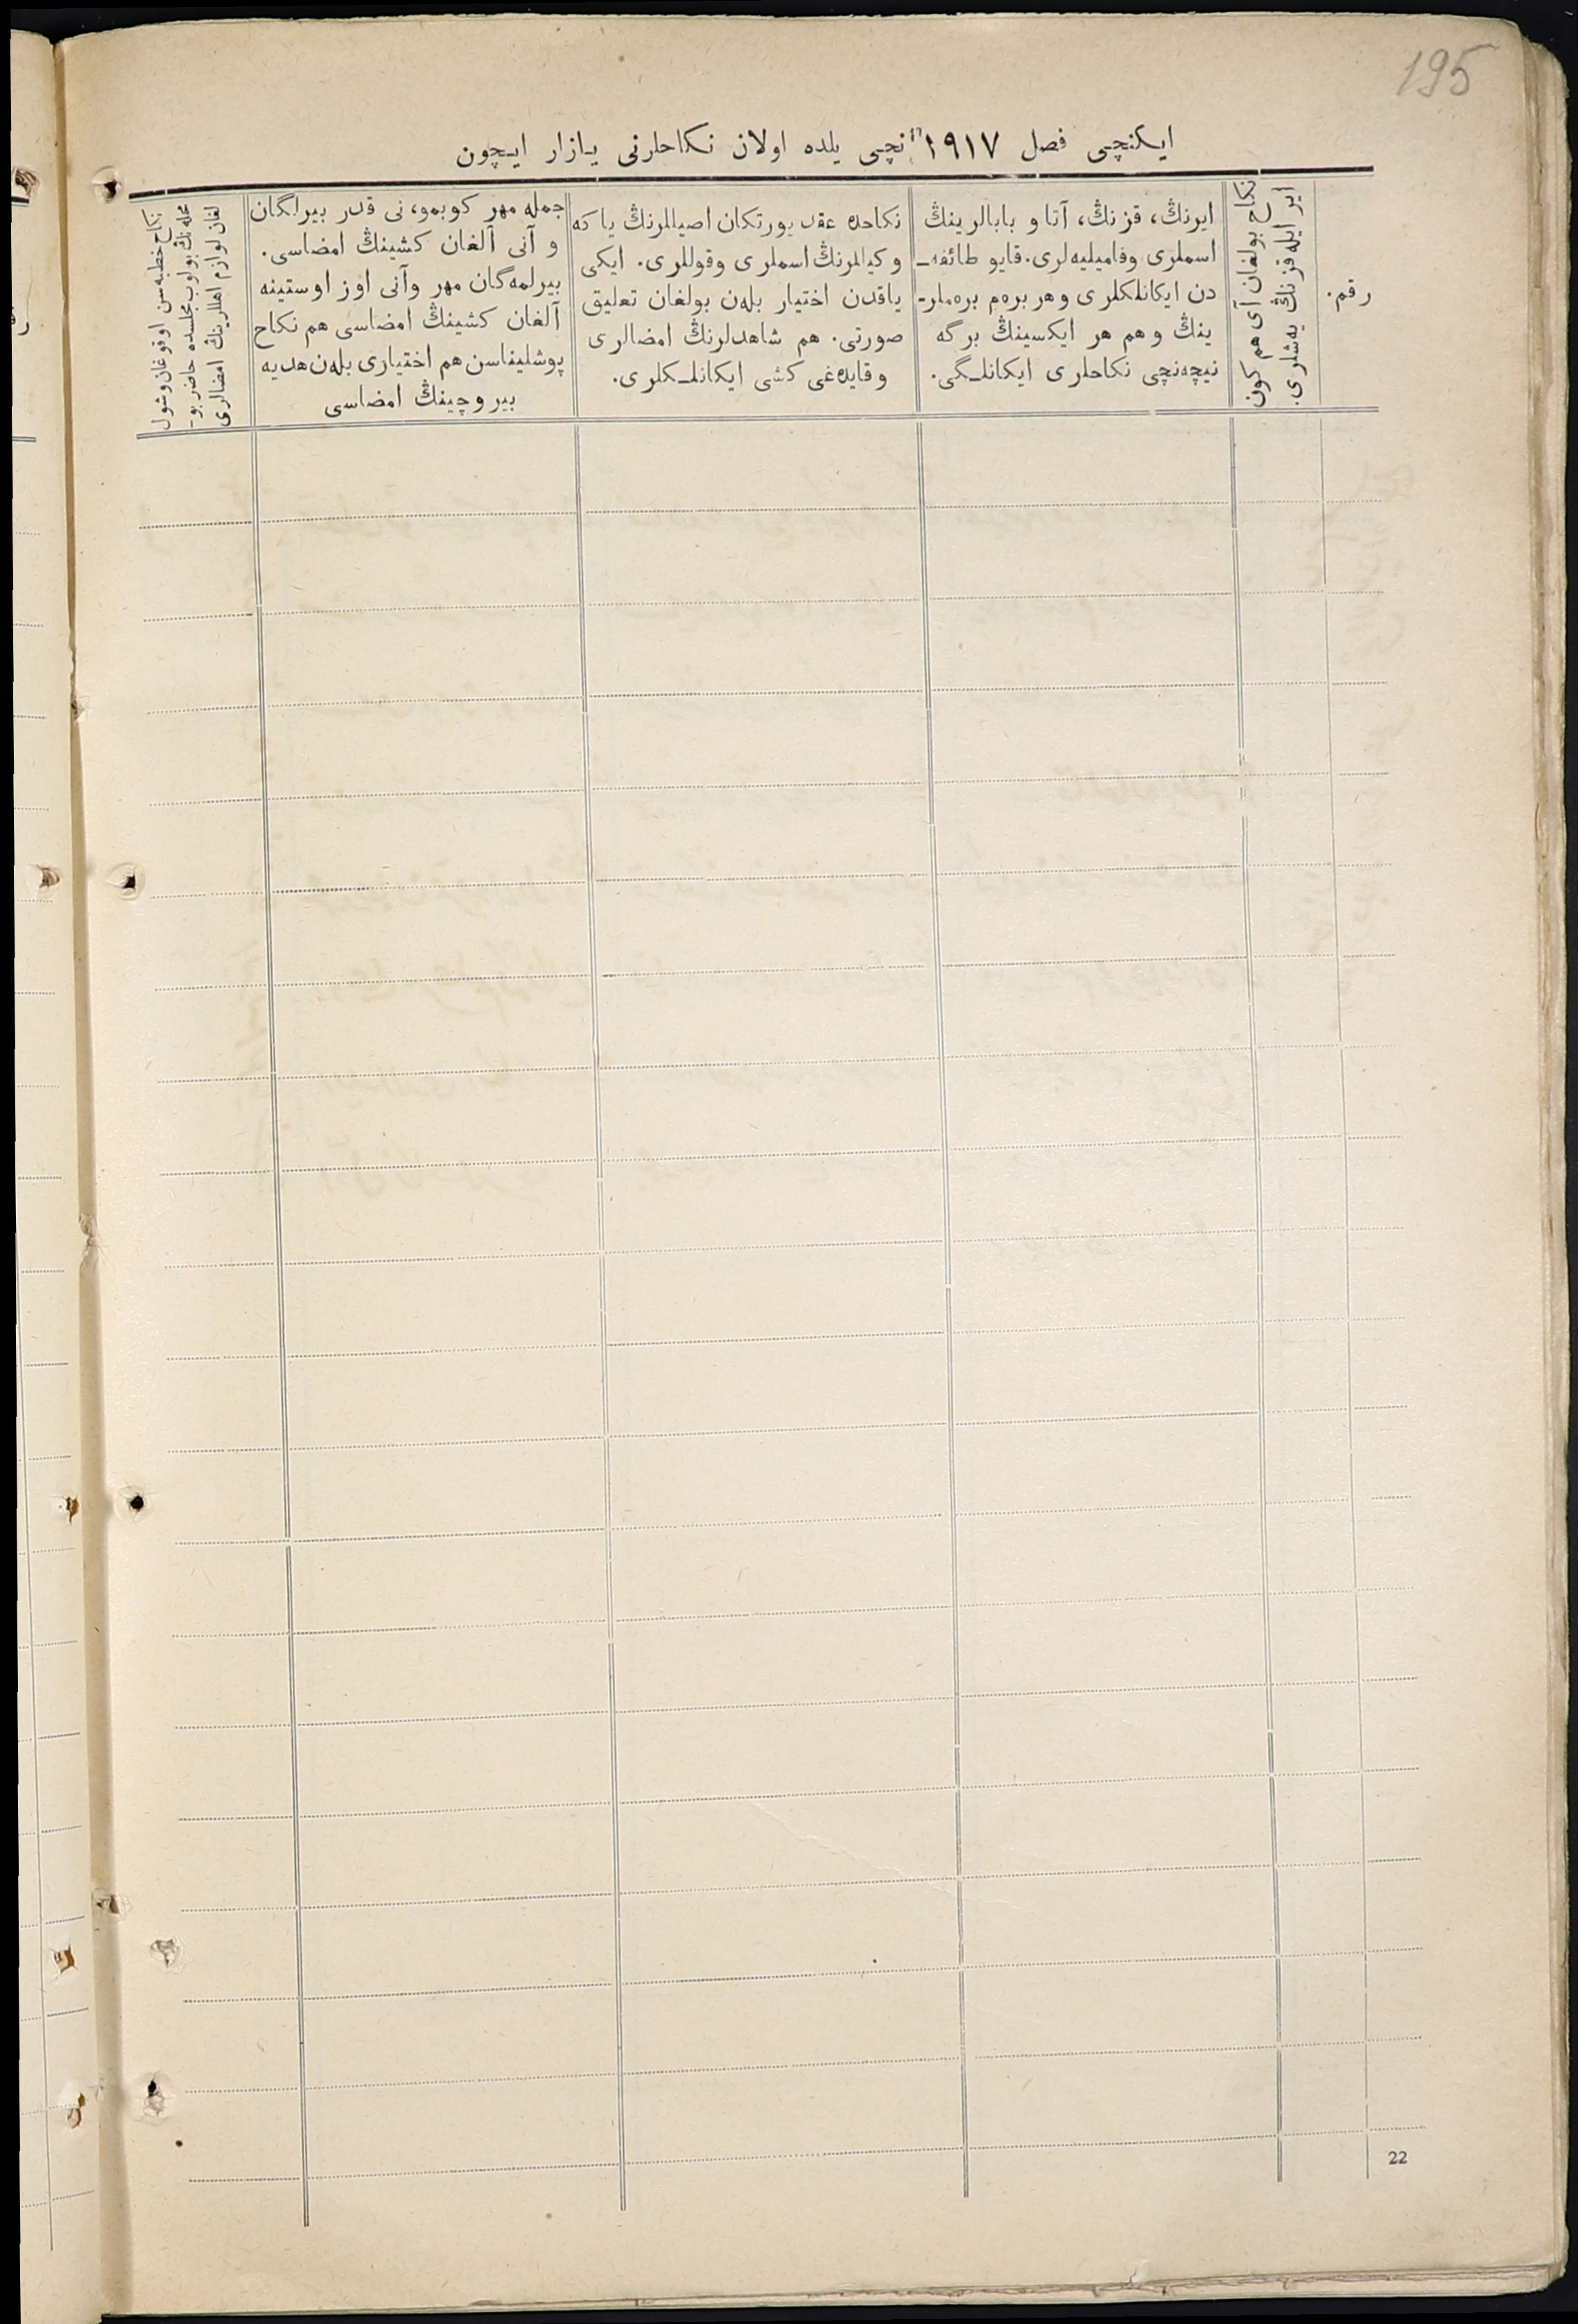 195
ایكنچی فصل ١٩١٧ نچی یلده اولان نكاحلرنی یازار ایچون
رقم.
ایر ایله قزنڭ یه‌شلری.
نكاح بولغان آی هم كون
ایرنڭ، قزنڭ، آتا و بابالرینڭ
اسملری وفامیلیه‌لری. قایو طائفه‌ـ
دن ایكانلكلری وهر بره‌م بره‌ملرـ
ینڭ وهم هر ایكسینڭ برگه
نیچه‌نچی نكاحلری ایكانلـگی.
نكاحده عقد یورتكان اصیللرنڭ یا كه
وكیللرنڭ اسملری وقوللری. ایكی
یاقدن اختیار بله‌ن بولغان تعلیق
صورتی. هم شاهدلرنڭ امضالری
وقایده‌غی كشی ایكانلـكلری.
جمله مهر كوبمو، نی قدر بیرلگان
و آنی آلغان كشینڭ امضاسی.
بیرلمه‌گان مهر وآنی اوز اوستینه
آلغان كشینڭ امضاسی هم نكاح
پوشلیناسن هم اختیاری بله‌ن هدیه
بیروچینڭ امضاسی
نكاح خطبه‌سن اوقوغان وشول
محله‌نڭ بولوب مجلسده حاضر بوـ
لغان لوازم اهللرینڭ امضالری
22